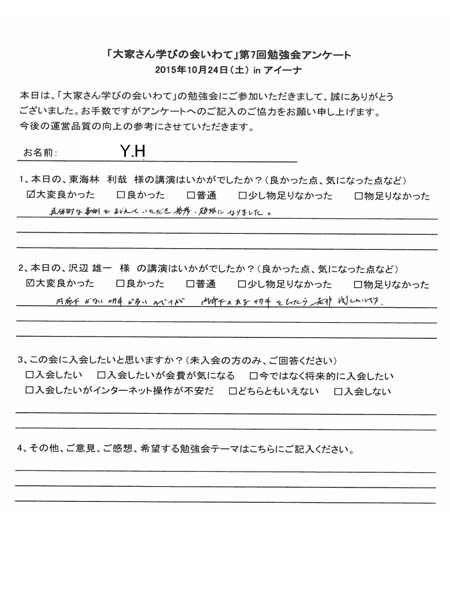 「大家さん学びの会いわて」第7回勉強会アンケート
2015年10月24日（土） in アイーナ
本日は、「大家さん学びの会いわて」の勉強会にご参加いただきまして、誠にありがとう
ございました。お手数ですがアンケートへのご記入のご協力をお願い申し上げます。
今後の運営品質の向上の参考にさせていただきます。
お名前: Y.H
1、本日の、東海林 利哉 様の講演はいかがでしたか？（良かった点、気になった点など）
☑大変良かった □良かった □普通 □少し物足りなかった □物足りなかった
具体的な事例をまじえていただき 参考、勉強になりました。
2、本日の、沢辺 雄一 様 の講演はいかがでしたか？（良かった点、気になった点など）
☑大変良かった □良かった □普通 □少し物足りなかった □物足りなかった
3、この会に入会したいと思いますか？（未入会の方のみ、ご回答ください）
□入会したい □入会したいが会費が気になる □今ではなく将来的に入会したい
□入会したいがインターネット操作が不安だ □どちらともいえない □入会しない
4、その他、ご意見、ご感想、希望する勉強会テーマはこちらにご記入ください。